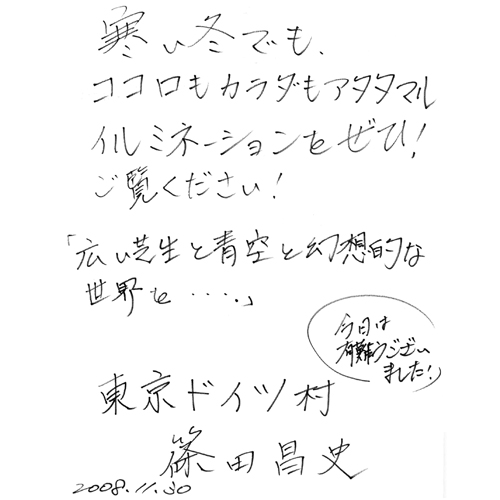 寒い冬でも、
ココロもカラダもアタタマル
イルミネーションをぜひ!
ご覧ください!
「広い芝生と青空と幻想的な
世界を・・・・。」
今日は
有難うござい
ました!
東京ドイツ村
篠田昌史
2008.11.30